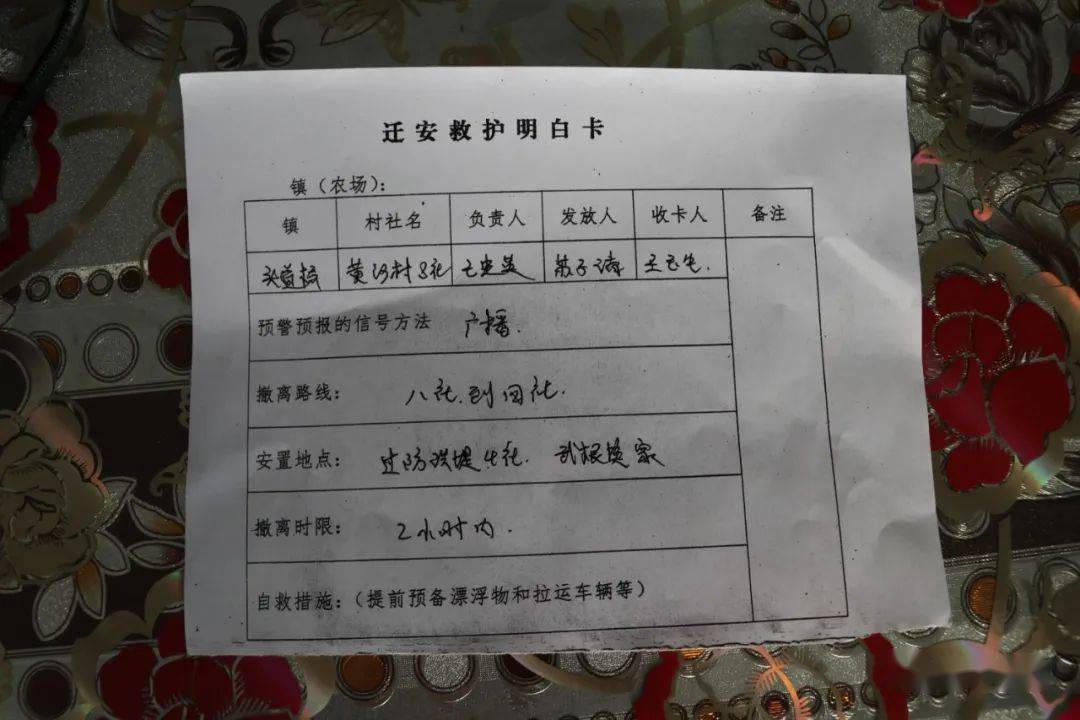 迁安救护明白卡
镇（农场）：
镇 村社名 负责人 发放人 收卡人 备注
头道桥 黄河村8社
预警预报的信号方法 广播.
撤离路线： 八社.到四社.
安置地点： 过防洪堤4社. 武根换家
撤离时限： 2小时内.
自救措施：（提前预备漂浮物和拉运车辆等）